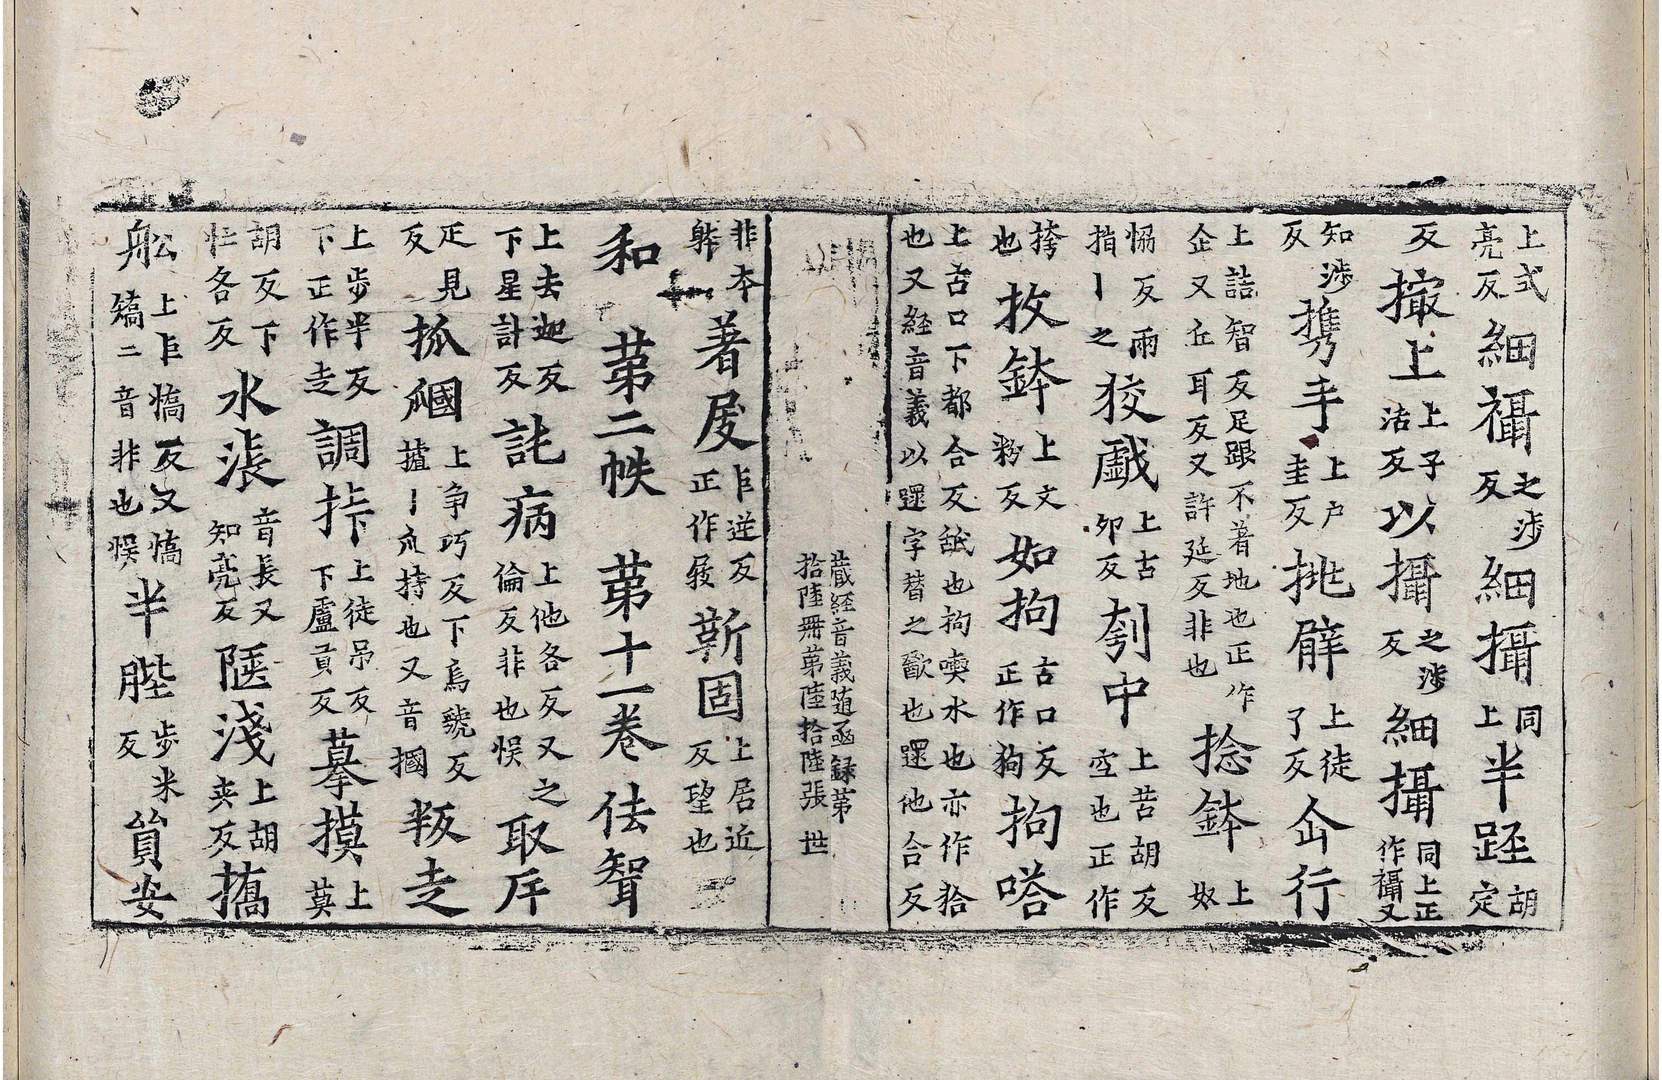 上式亮反細䙝之涉反細攝同上半踁胡定
反撮上上子活反以攝之涉反細攝同上正作䙝又
知涉反㩦手上户圭反挑擗上徒了反仚行
上詰智反足跟不著地也正作企又丘耳反又許延反非也捻鉢上奴
恊反兩指丨之狡戱上古卯反刳中上苦胡反空也正作
挎也抆鉢上文粉反如拘古口反正作狗拘嗒
上古口下都合反䑛也拘噢水也亦作拾也又経音義以𨗿字替之歠也𨗿他合反
藏経音義随函録第拾陸冊第陸拾陸張 世
非夲躰著屐巨逆反正作屐靳固上居近反堅也
和 第二帙 第十一卷 佉智
上去迦反下星計反託病上他各反又之倫反非也悮取斥
疋見反抓㼱上争巧反下烏虢反摣丨爪持也又音摑叛走
上步半反下正作走調挊上徒吊反下盧貢反摹摸上莫
胡反下忙各反水漲音長又知亮反陿淺上胡夾反撟
舩上巨憍反又憍矯二音非也悮半䏶步米反貟安